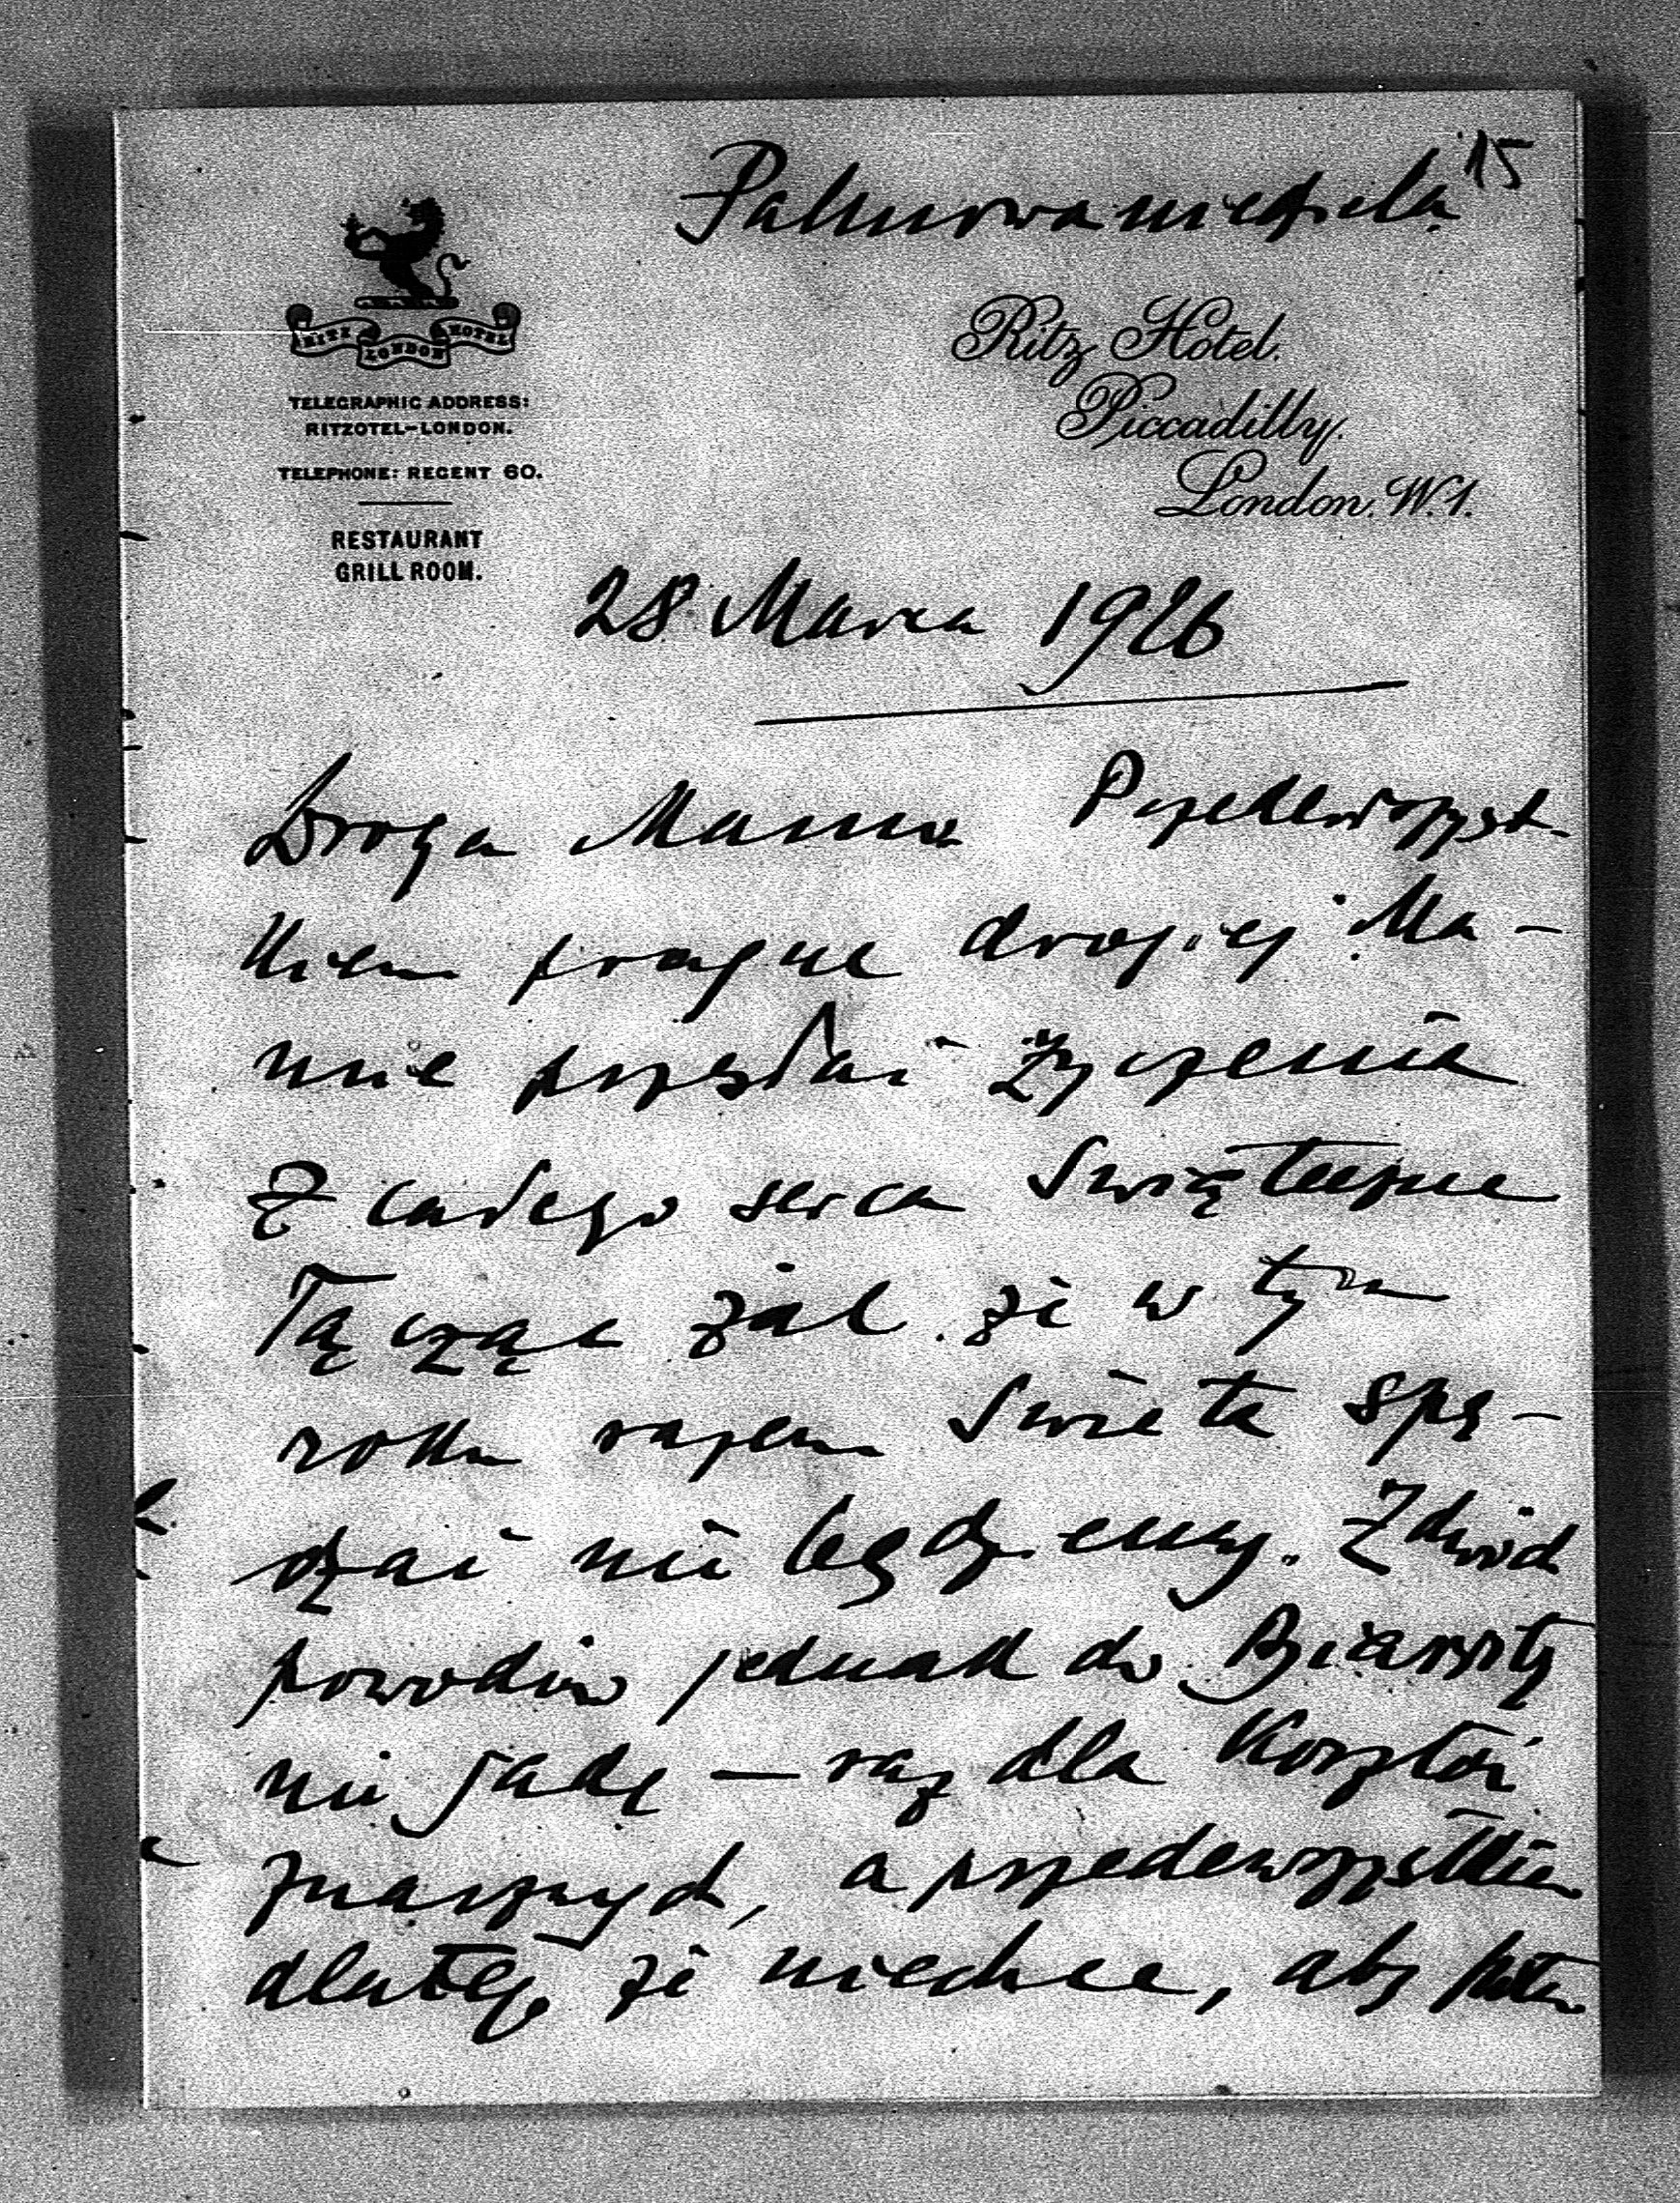 15
Palmowa niedziela
RITZ LONDON HOTEL
TELEGRAPHIC ADDRESS:
RITZOTEL-LONDON.
TELEPHONE: REGENT 60.
RESTAURANT
GRILL ROOM.
Ritz Hotel.
Piccadilly.
London. W.1.
28 Marca 1926
Droga Mamo Przedewszyst-
kiem pragnę drogiej Ma-
mie przesłać życzenia
z całego serca Świąteczne
Łącząc żal że w tym
roku razem Święta spę-
dzać nie będziemy. Z dwóch
powodów jednak do Biarritz
nie jadę — raz dla kosztów
znacznych, a przedewszystkiem
dlatego że niechcę, aby